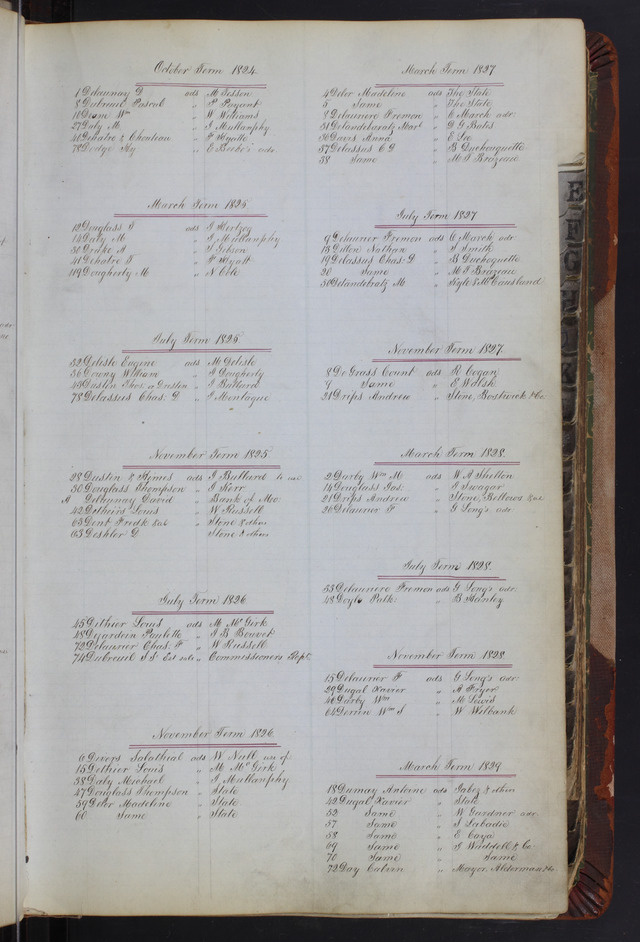 October Term 1824
1 Delaunay D ads M Tesson
8 Dubreuil Pascal " P Payant
10 Dunn Wm " W Williams
27 Daly M " J Mullanphy
40 Dehatre & Chouteau " F Hyatt
78 Dodge Hy " E Beebe's adr.
March Term 1825
12 Douglass T ads J Hertzog
14 Daly M " J Mullanphy
30 Drake A " J Jobson
41 Dehatre T " F Hyatt
119 Dougherty M " N Cole
July Term 1825
32 Deliste Eugene ads M Deliste
36 Downy William " J Dougherty
45 Dustin Thos. or Dresten " J Bullard
78 Delassus Chas. D " J Montague
November Term 1825
28 Dustin & Homes ads J Bullard to use
30 Douglass Thompson " J Kerr
A Delaunay David " Bank of Mo.
42 Dethiers Louis " W Russell
63 Dent Fredk &al " Stone & others
63 Deshler D Stone & others
July Term 1826
45 Dethier Louis ads M McGirk
48 Dejardein Paulette " J B Bouvet
72 Delaurier Chas. F " W Russell
74 Dubreuil S Sr Est ads " Commissioners Rept.
November Term 1826
6 Devers Salathial ads W Neill use of
15 Dethier Louis " M McGirk
38 Daly Michael " J Mullanphy
47 Douglass Thompson " State
59 Deler Madeline " State
60 Same " State
March Term 1827
4 Deler Madeline ads The State
5 Same " The State
8 Delauriere Fremon " C March adr.
31 Delandebaratz Mart " D G Bates
36 Davis Anna " E Lee
57 Delassus C D " B Duchouquette
58 Same " M T Brazeau
July Term 1827
9 Delaurier Fremon ads C March adr
15 Dillon Nathan " S Smith
19 Delassus Chas. D " B Duchoquette
20 Same " M T Brazeau
30 Delandebratz M " Kyle & McCausland
November Term 1827.
8 De Grass Count ads R Cogan
9 Same " E Walsh
21 Drips Andrew " Stone, Bostwick & Co.
March Term 1828.
2 Darby Wm M ads W A Shelton
14 Douglass Jas. " J Swagar
21 Drips Andrew " Stone, Bellows &al
26 Delaurior F " G Long's adr
July Term 1828
33 Delauriere Fremon ads G Long's adr.
48 Doyle Patk. " B Stanley
November Term 1828
15 Delaurier F ads G Long's adr.
29 Dugal Xavier " A Fryer
40 Darby Wm " M Lewis
64 Derrin Wm S " W Wilbank
March Term 1829
18 Dumay Antoine ads Jabez & others
42 Dugal Xavier " State
52 Same " W Gardner adr
57 Same " J Labadie
58 Same " E Caya
69 Same " J Waddell & Co
70 Same " Same
72 Day Calvin " Mayor, Alderman &c.
E
F
G
H
K